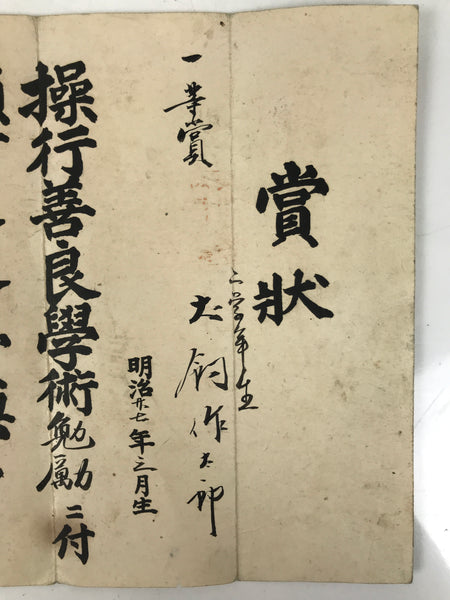 賞狀
一等賞
二学年生
大飼作太郎
明治廿七年三月生
操行善良學術勉励ニ付